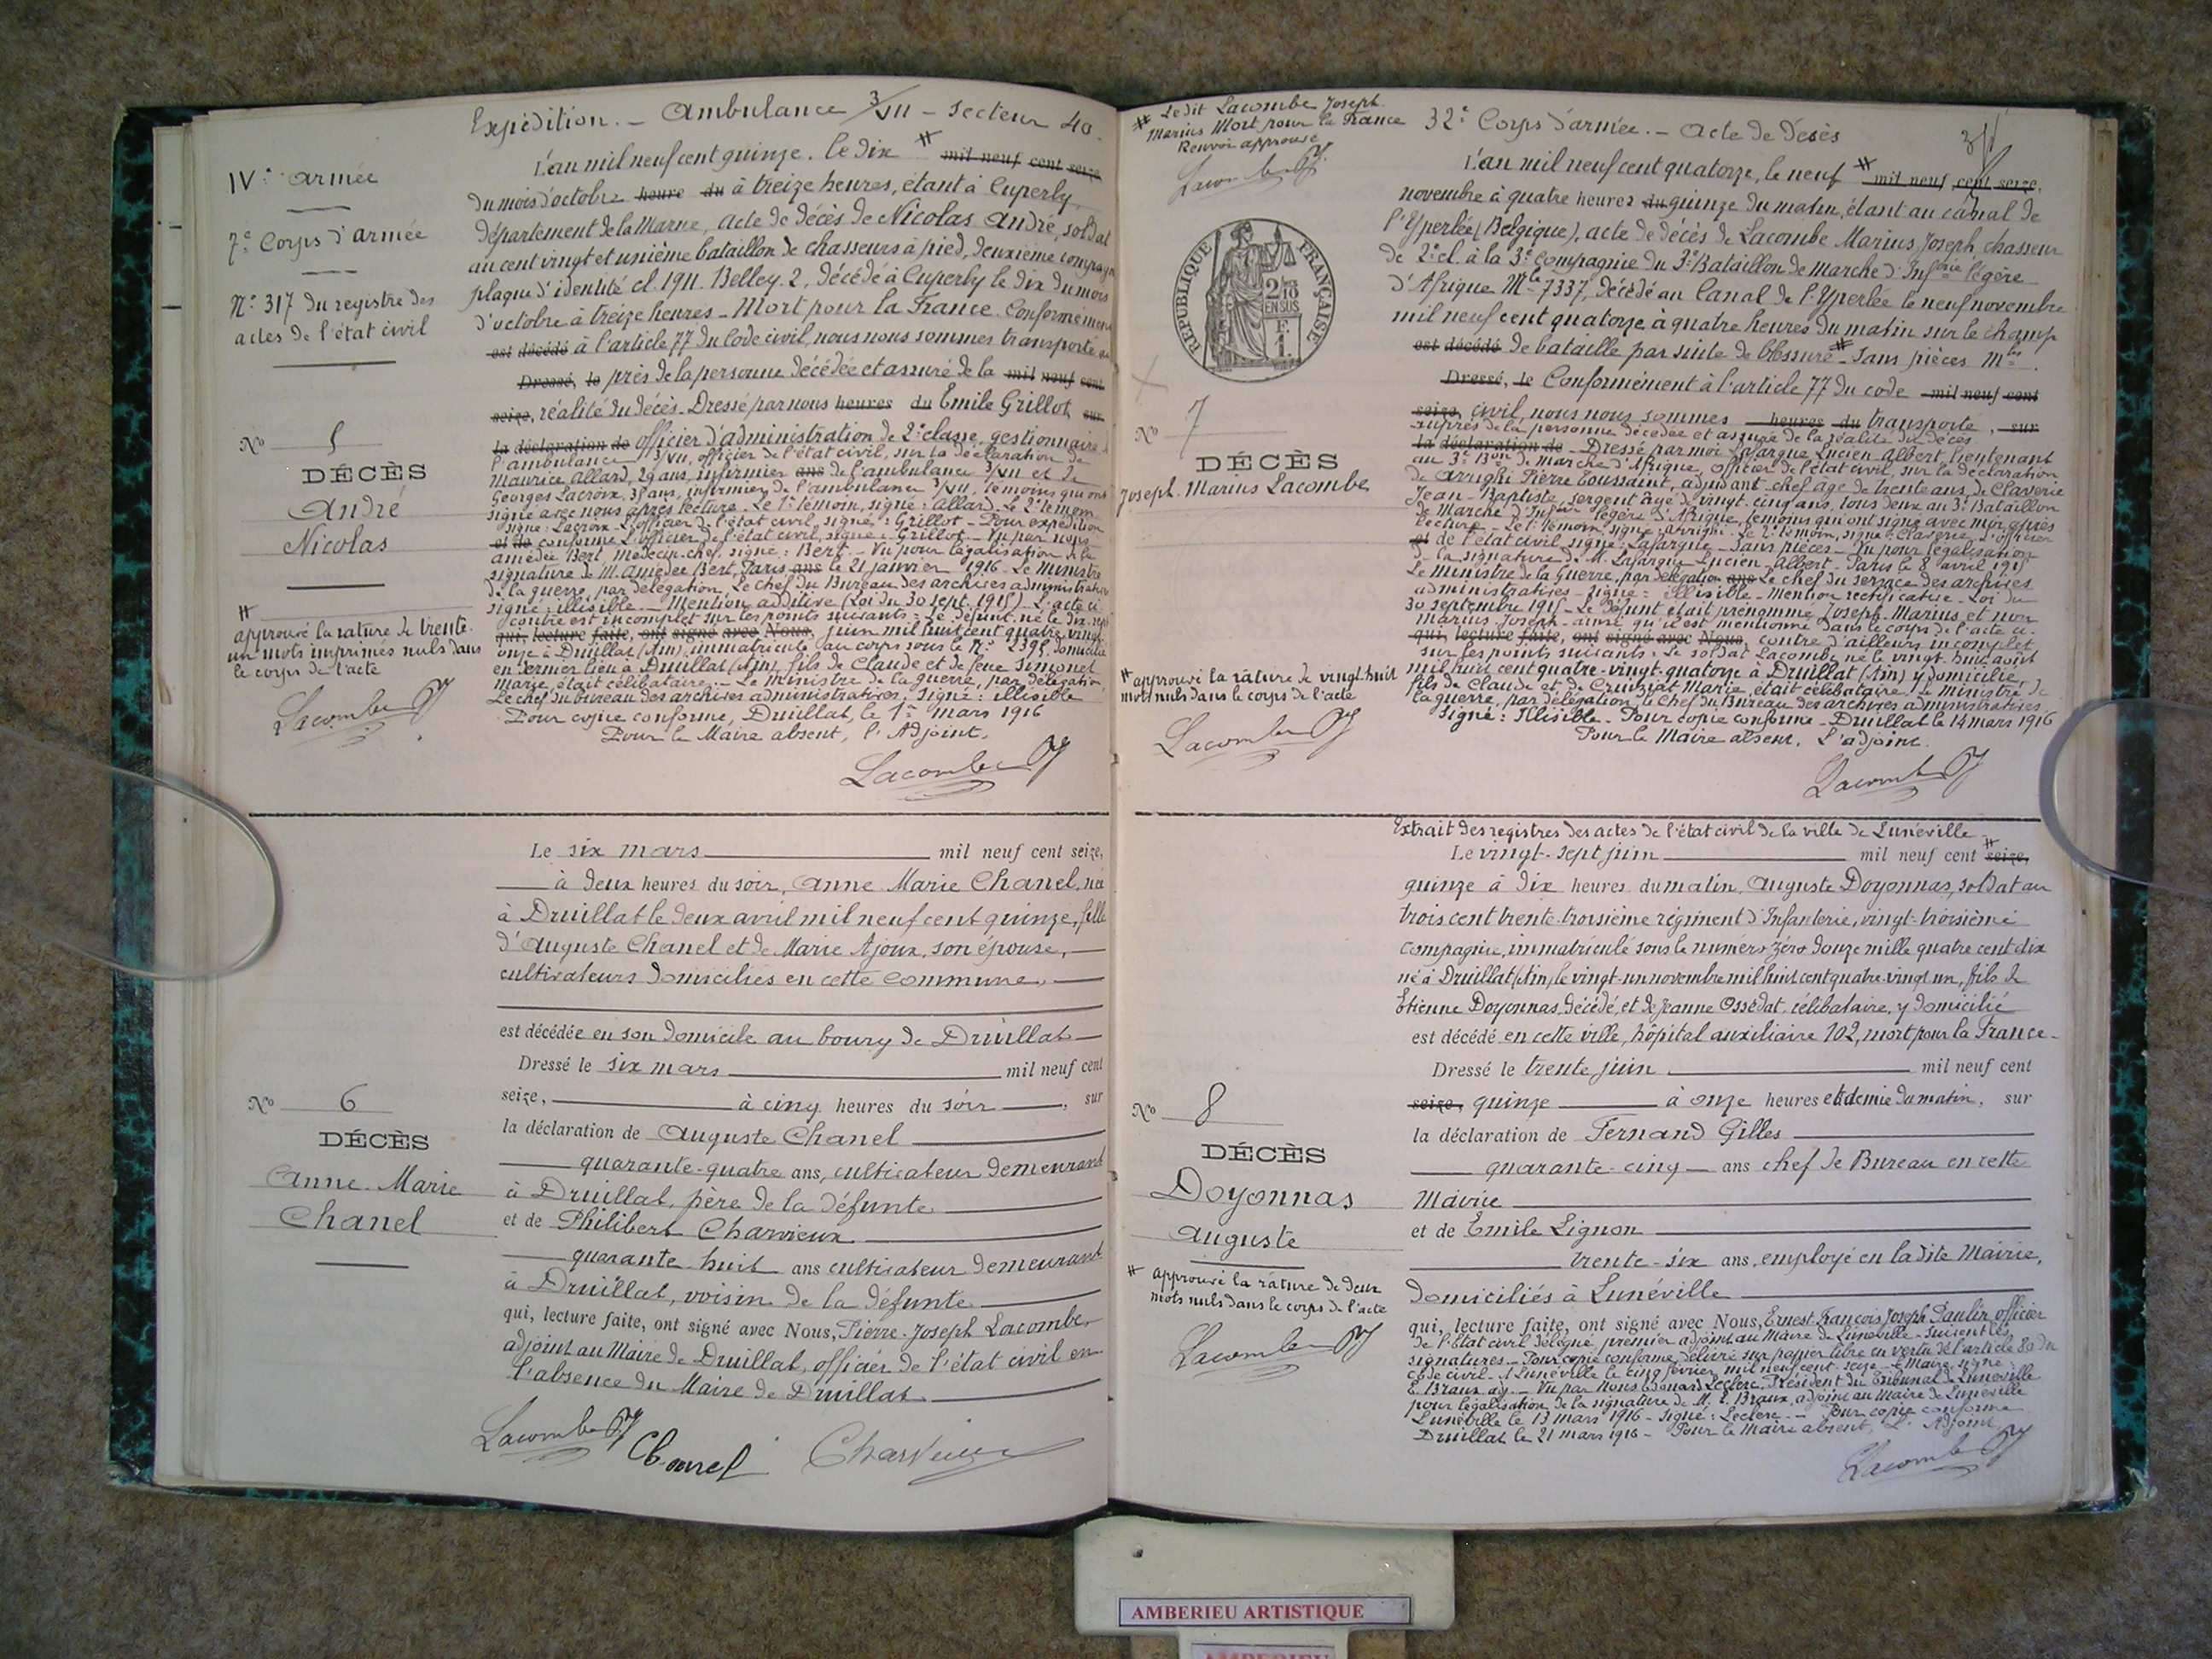 Expédition. - Ambulance 3/VII - Secteur 40.
IVe armée
7e Corps d'armée
N° 317 du registre des
actes de l'état civil
L'an mil neuf cent quinze. le dix # mil neuf cent seize
du mois d'octobre heure du à treize heures, étant à Cuperly
département de la Marne, acte de décès de Nicolas André, soldat
au cent vingt et unième bataillon de chasseurs à pied, deuxième compagn
plaque d'identité cl. 1911. Belley. 2, décédé à Cuperly le dix du mois
d'octobre à treize heures - Mort pour la France. Conformémen
est décédé à l'article 77 du Code civil, nous nous sommes transporté
Dressé, le près de la personne décédée et assuré de la mil neuf cent
seize, réalité du décès. Dressé par nous heures du Emile Grillot, sur
la déclaration de officier d'administration de 2e classe, gestionnaire
l'ambulance 3/VII, officier de l'état civil, sur la déclaration de
Maurice Allard, 29 ans, infirmier ans de l'ambulance 3/VII et de
Georges Lacroix, 35 ans, infirmier de l'ambulance 3/VII, témoins qui ont
signé avec nous après lecture. Le 1er témoin, signé : Allard. Le 2e témoin
signé : Lacroix. L'officier de l'état civil, signé : Grillot - Pour expédition
et de conforme L'officier de l'état civil, signé : Grillot - Vu par nous
Amédée Bert, Médecin-chef, signé : Bert. - Vu pour légalisation de la
signature de M. Amédée Bert, Paris ans le 21 janvier 1916 - Le Ministre
de la guerre, par délégation, Le chef du Bureau des archives administrative
signé : illisible. - Mention additive (Loi du 30 sept. 1915) - L'acte ci-
contre est incomplet sur les points suivants : Le défunt, né le dix-sept
qui, lecture faite, ont signé avec Nous, juin mil huit cent quatre-vingt
onze à Druillat (Ain), immatriculé au corps sous le N° 2395, domicilié
en dernier lieu à Druillat (Ain), fils de Claude et de feue Simonet
Marie, était célibataire. - Le ministre de la guerre, par délégation,
Le chef du bureau des archives administratives. Signé : illisible
Pour copie conforme, Druillat, le 1er mars 1916
Pour le Maire absent, l'Adjoint,
Lacombe PJ
N° 5
DÉCÈS
André
Nicolas
#
approuvé la rature de trente
un mots imprimés nuls dans
le corps de l'acte
Lacombe PJ
N° 6
DÉCÈS
Anne-Marie
Chanel
Le six mars mil neuf cent seize,
à deux heures du soir, Anne Marie Chanel, née
à Druillat le deux avril mil neuf cent quinze, fille
d'Auguste Chanel et de Marie Ajoux, son épouse,
cultivateurs domiciliés en cette commune,
est décédée en son domicile au bourg de Druillat
Dressé le six mars mil neuf cent
seize, à cinq heures du soir, sur
la déclaration de Auguste Chanel
quarante-quatre ans, cultivateur demeurant
à Druillat, père de la défunte
et de Philibert Charvieux
quarante huit ans cultivateur demeurant
à Druillat, voisin de la défunte
qui, lecture faite, ont signé avec Nous, Pierre-Joseph Lacombe,
adjoint au Maire de Druillat, officier de l'état civil en
l'absence du Maire de Druillat
Lacombe PJ Chanel Charvieux
# Le dit Lacombe Joseph
Marius Mort pour la France
Renvoi approuvé
Lacombe PJ
RÉPUBLIQUE FRANÇAISE
2/10
EN SUS
32e Corps d'armée. - Acte de Décès
L'an mil neuf cent quatorze, le neuf # mil neuf cent seize,
novembre à quatre heures du quinze du matin, étant au canal de
l'Yperlée (Belgique), acte de décès de Lacombe Marius Joseph chasseur
de 2e cl. à la 3e Compagnie du 3e Bataillon de Marche d'Infrie légère
d'Afrique Mle 7337, décédé au Canal de l'Yperlée le neuf novembre
mil neuf cent quatorze à quatre heures du matin sur le champ
est décédé de bataille par suite de blessure # - Sans pièces Mles.
Dressé, le Conformément à l'article 77 du code mil neuf cent
seize, civil, nous nous sommes heures du transporté, sur
auprès de la personne décédée et assuré de la réalité du décès
la déclaration de - Dressé par moi Lafargue Lucien Albert, lieutenant
au 3e Bon de marche d'Afrique, officier de l'état civil, sur la déclaration
de Arrighi Pierre Toussaint, adjudant chef âgé de trente ans, de Claverie
Jean-Baptiste, sergent âgé de vingt-cinq ans, tous deux au 3e Bataillon
de Marche d'Infrie légère d'Afrique, témoins qui ont signé avec moi, après
lecture - Le 1er témoin signé : Arrighi. Le 2e témoin, signé : Claverie. L'officier
et de l'état civil signé : Lafargue - Sans pièces - Vu pour légalisation
de la signature de M. Lafargue Lucien-Albert - Paris le 8 avril 1915
Le Ministre de la Guerre, par délégation ans Le chef du service des archives
administratives - Signé : illisible - Mention rectificative - Loi du
30 septembre 1915 - Le défunt était prénommé Joseph-Marius et non
Marius-Joseph - ainsi qu'il est mentionné dans le corps de l'acte ci-
qui, lecture faite, ont signé avec Nous, contre d'ailleurs incomplet
sur les points suivants : Le soldat Lacombe né le vingt-huit août
mil huit cent quatre-vingt-quatorze à Druillat (Ain) y domicilié,
fils de Claude et de Cruiziat Marie, était célibataire. Le ministre de
la guerre, par délégation, le chef du Bureau des archives administratives
Signé : Illisible. Pour copie conforme - Druillat le 14 mars 1916
Pour le Maire absent, L'adjoint
Lacombe PJ
N° 7
DÉCÈS
Joseph-Marius Lacombe
# approuvé la rature de vingt-huit
mots nuls dans le corps de l'acte
Lacombe PJ
Extrait des registres des actes de l'état civil de la ville de Lunéville
Le vingt-sept juin mil neuf cent # seize,
quinze à dix heures du matin, Auguste Doyonnas, soldat au
trois cent trente-troisième régiment d'Infanterie, vingt-troisième
Compagnie, immatriculé sous le numéro zéro douze mille quatre cent dix
né à Druillat (Ain), le vingt-un novembre mil huit cent quatre-vingt un, fils de
Etienne Doyonnas, décédé, et de Jeanne Ossédat, célibataire, y domicilié
est décédé en cette ville, hôpital auxiliaire 102, mort pour la France.
Dressé le trente juin mil neuf cent
seize, quinze à onze heures et demie du matin, sur
la déclaration de Fernand Gilles
quarante-cinq ans chef de Bureau en cette
Mairie
et de Emile Lignon
trente-six ans, employé en la dite Mairie,
domiciliés à Lunéville
qui, lecture faite, ont signé avec Nous, Ernest François Joseph Paulin officier
de l'Etat civil délégué, premier adjoint au Maire de Lunéville - Suivent les
signatures - Pour copie conforme délivré sur papier libre en vertu de l'article 80 du
Code civil - A Lunéville le cinq février mil neuf cent seize - Le Maire, signé :
E. Braux adj. - Vu par Nous Edouard Leclerc, Président du Tribunal de Lunéville
pour légalisation de la signature de M. E. Braux, adjoint au Maire de Lunéville
Lunéville le 13 mars 1916 - Signé : Leclerc. - Pour copie conforme
Druillat le 21 mars 1916 - Pour le Maire absent, L'Adjoint
Lacombe PJ
N° 8
DÉCÈS
Doyonnas
Auguste
# approuvé la rature de deux
mots nuls dans le corps de l'acte
Lacombe PJ
AMBERIEU ARTISTIQUE
AMBERIEU